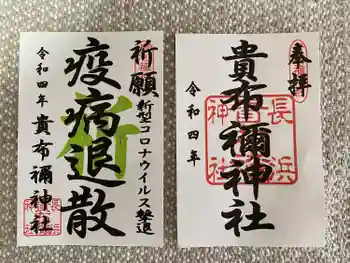 祈願
新型コロナウイルス撃退
疫病退散
令和四年
貴布禰神社
奉拝
貴布禰神社
令和四年